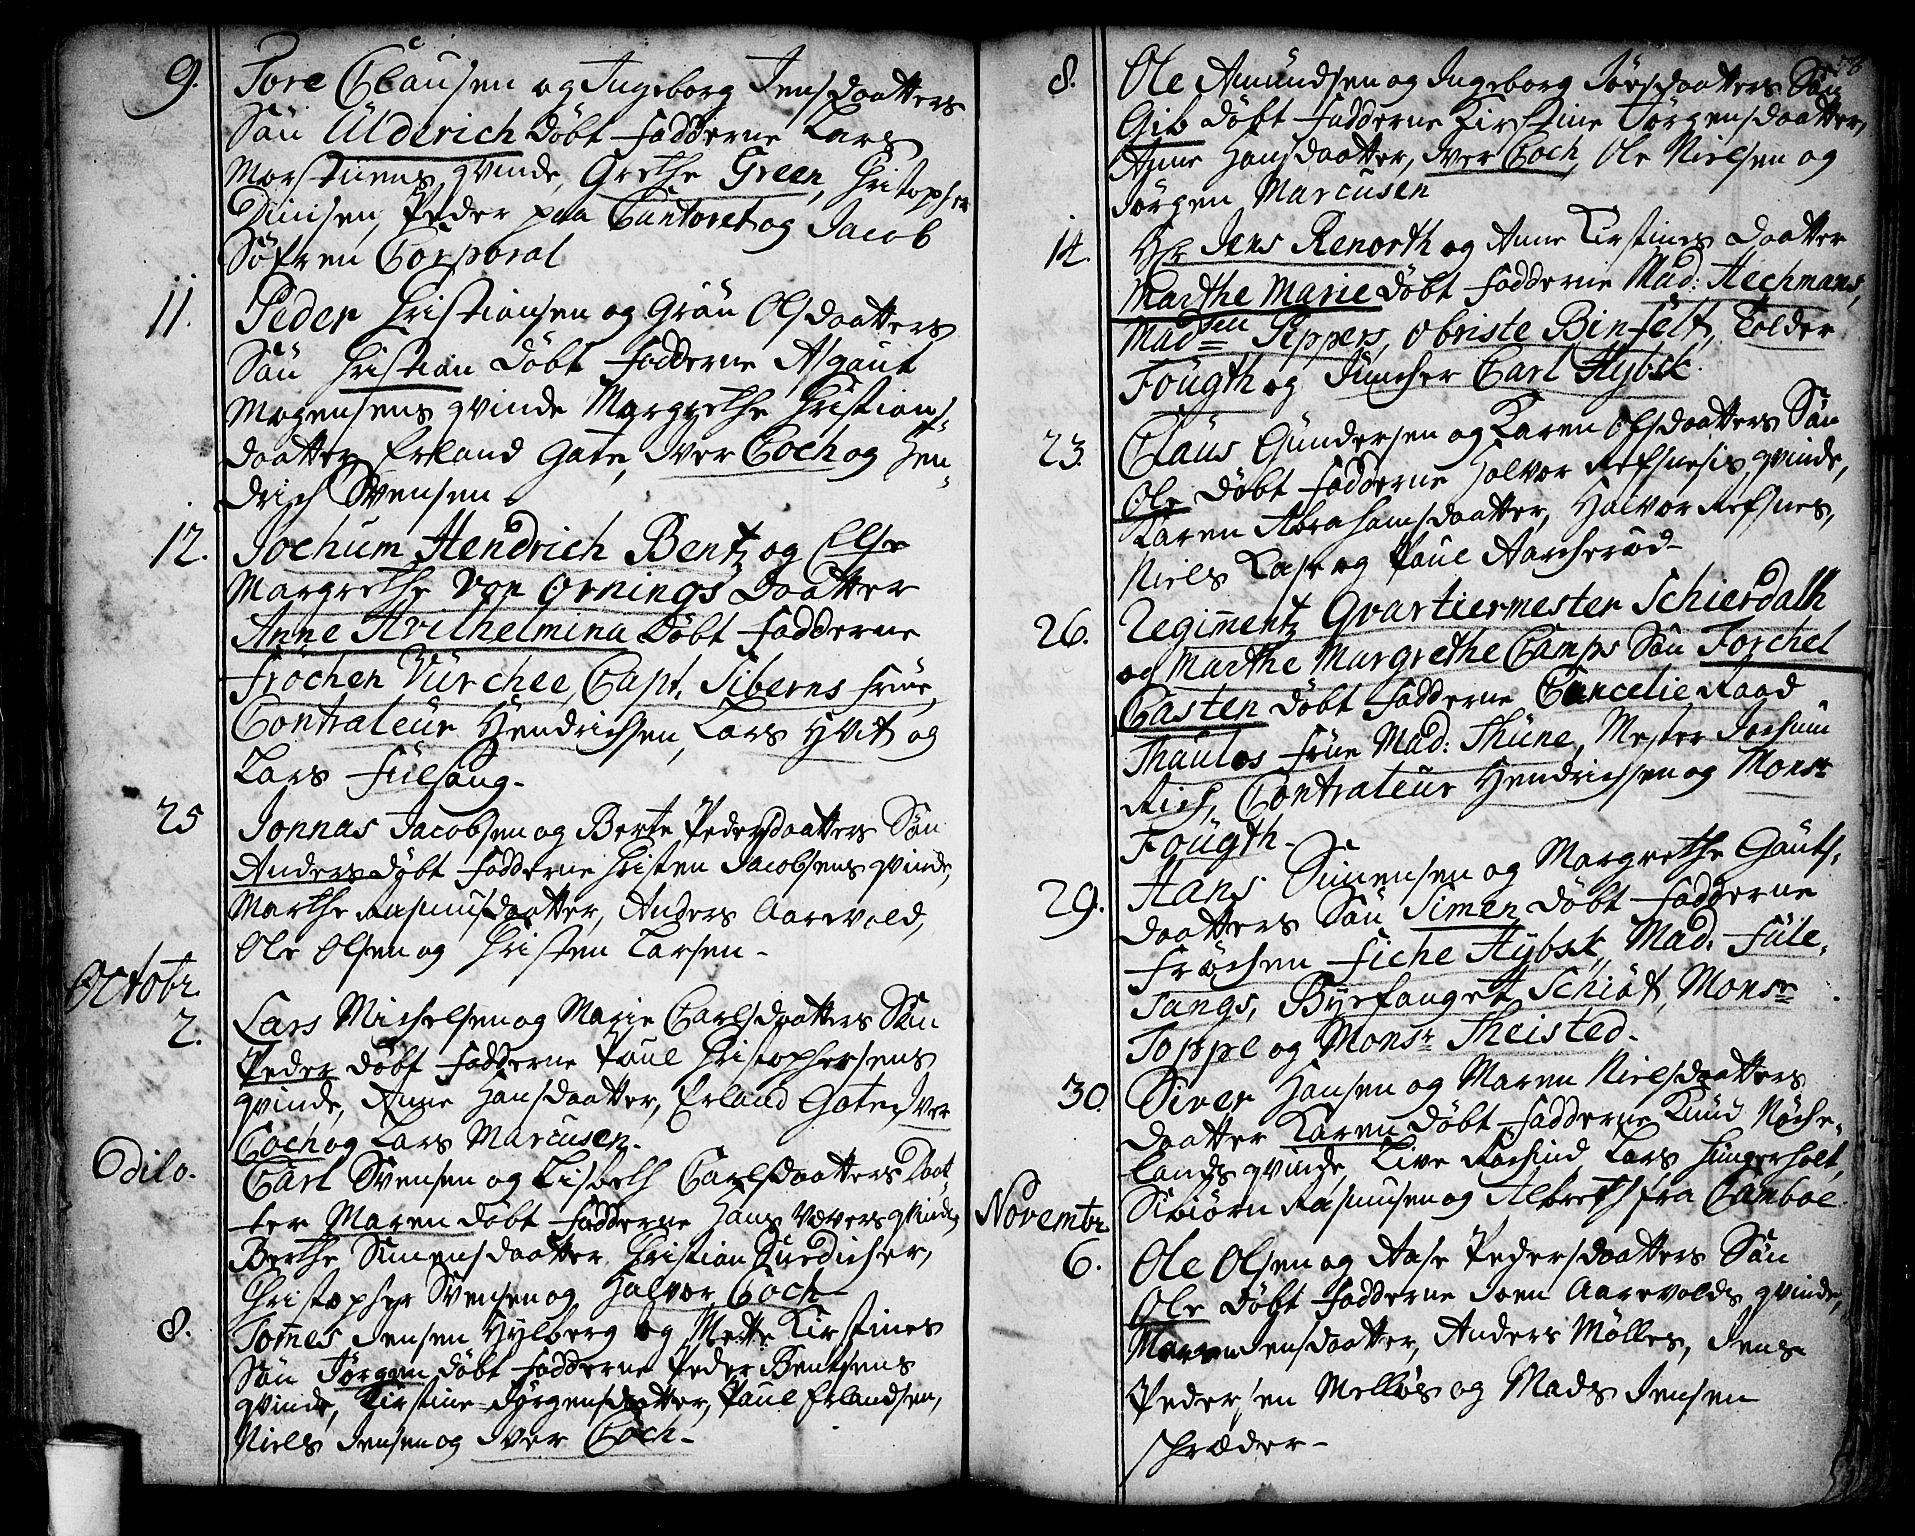 9. Tore Clausen og Ingeborg Jensdaatters
Sön Ulderich döbt Fadderne Lars
Morstuens qvinde, Grethe Green, Christopher
Dinisen, Peder paa Cantoret og Jacob
Söfren Corporal
11. Peder Christiansen og Grön Olsdaatters
Sön Christian döbt Fadderne Asgaut
Mogensens qvinde Margrethe Christians
daatter Erland Gate, Iver Coch og Hen-
drich Svensen.
12. Jochum Hendrich Bentz og Else
Margrethe von Ornings Daatter
Anne Hvilhelmina döbt Fadderne
Fröchen Vürchee, Capt. Siberns Frue,
Contraleur Hendrichsen, Lars Hvit og
Lars Fuelsang.
25 Jonnas Jacobsen og Berte Pedersdaatters Sön
Anders döbt Fadderne Christen Jacobsens qvinde,
Marthe Rasmusdaatter, Anders Aarevold,
Ole Olsen og Christen Larsen.
Octobr.
2. Lars Michelsen og Marie Carlsdaatters Sön
Peder döbt Fadderne Paul Christophersens
qvinde, Anne Hansdaatter, Erland Gate, Iver
Coch og Lars Marcusen.
Dito. Carl Svensen og Lisbeth Carlsdaatters Daat
ter Maren döbt Fadderne Hans Vævers qvinde
Berthe Simensdaatter Christian Snedicher,
Christopher Svensen og Halvor Coch
8. Tomes Jensen Hylberg og Mette Kirstines
Sön Jörgen döbt Fadderne Peder Bentsens
qvinde, Kirstine Jörgensdaatter, Paul Erlandsen,
Niels Jensen og Iver Coch.
58
8. Ole Amundsen og Ingeborg Jörsdaatters Sön
Gib döbt Fadderne Kirstine Jörgensdaatter,
Anne Hansdaatter, Iver Coch, Ole Nielsen og
Jörgen Marcusen
14. Hr Jens Renorth og Anne Kirstines Daatter
Marthe Marie döbt Fadderne Mad: Hechmans,
Mad:en Pippers, Obriste Binfelt, Tolder
Fougth og Juncher Carl Hybsk.
23. Claus Gundersen og Karen Olsdaatters Sön
Ole döbt Fadderne Halvor Refsnesis qvinde,
Karen Abrahamsdaatter, Halvor Refsnes,
Niels Kase og Paul Aarcheröd
26. Regimentz Qvartiermester Schierdalh
og Marthe Margrethe Camps Sön Torchel
Casten döbt Fadderne Cancelie Raad
Thaulos Frue Mad: Thune, Mester Jochum
Rich, Contraleur Hendrichsen og Monsr
Fougth.
29. Hans Simensen og Margrethe Gauts-
daatters Sön Simen döbt Fadderne
Fröchen Fiche Hybsk, Mad. Fule-
sangs, Byefauget Schiöt, Monsr
Toppe og Monsr Theisted.
30. Siver Hansen og Maren Nielsdaatters
Daatter Karen döbt Fadderne Knud Nöche-
lands qvinde, Live Lars Hungerholt,
Sibiörn Rasmusen og Albreth fra Camboe
Novembr
6. Ole Olsen og Aase Pedersdaatters Sön
Ole döbt Fadderne Joen Aarevolds qvinde,
Maren Jensdaatter, Anders Mölles, Jens
Pedersen Mellös og Mads Jensen
schræder.